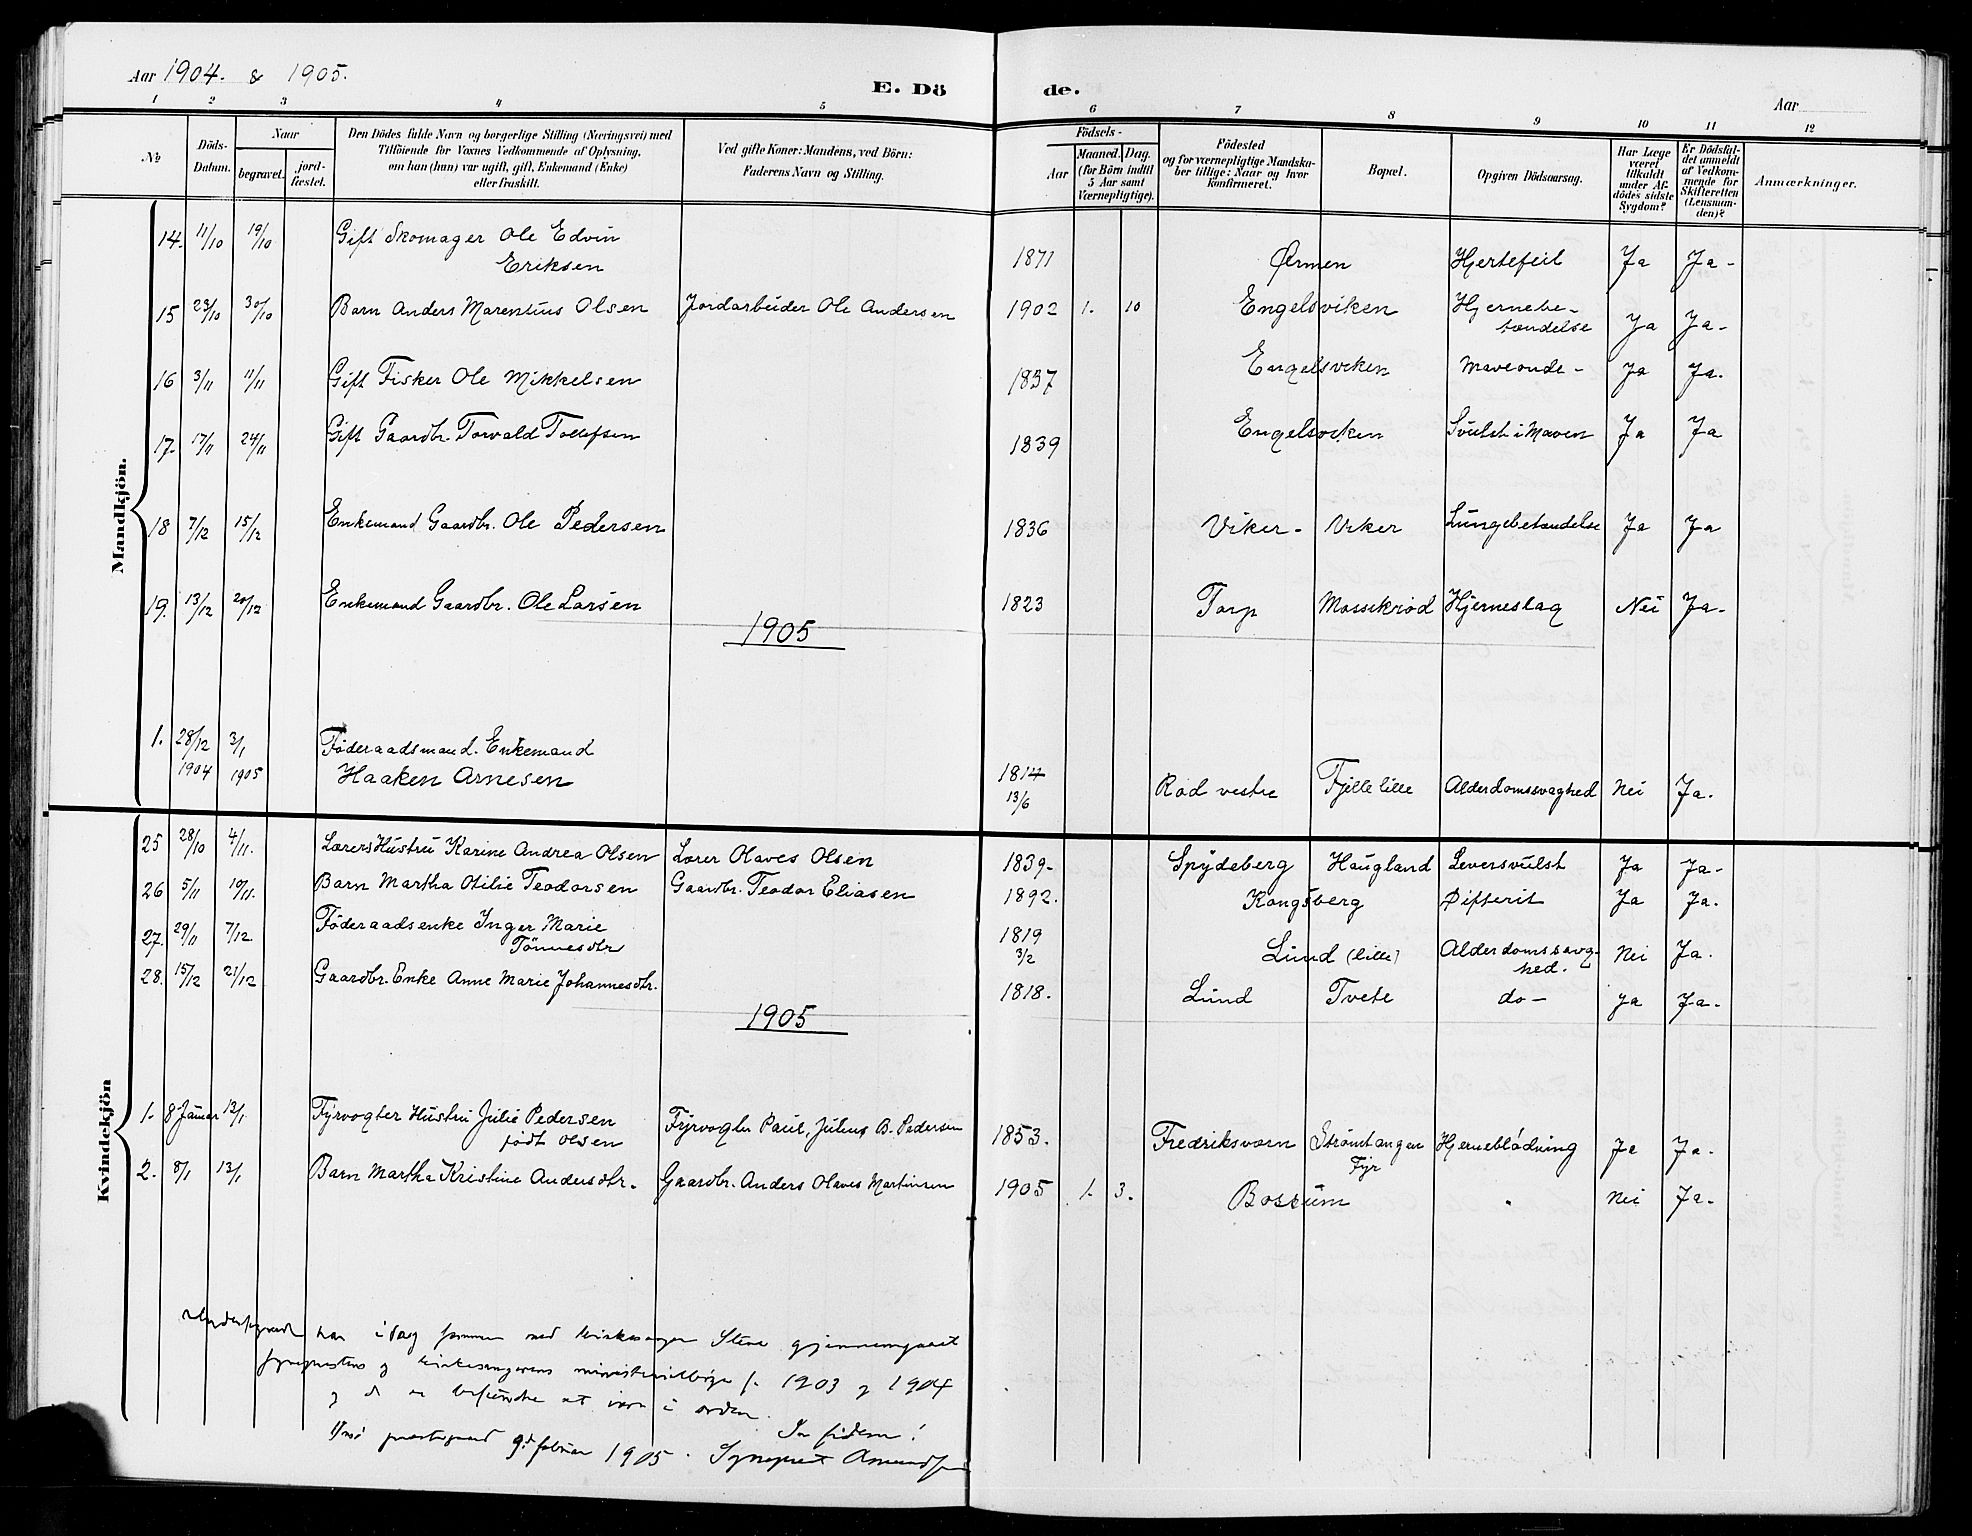 Aar 1904. & 1905.
E. Dö de.
Aar
1 2 3 4 5 6 7 8 9 10 11 12
№
Döds-Datum.
Naar
begravet.
jord-fæstet.
Den Dödes fulde Navn og borgerlige Stilling (Næringsvei) med
Tilföiende for Voxnes Vedkommende af Oplysning,
om han (hun) var ugift, gift, Enkemand (Enke)
eller fraskilt.
Ved gifte Koner: Mandens, ved Börn:
Faderens Navn og Stilling.
Födsels-
Aar
Maaned. Dag.
(for Börn indtil
5 Aar samt
Værnepligtige).
Födested
og for værnepligtige Mandska-
ber tillige: Naar og hvor
konfirmeret.
Bopæl.
Opgiven Dödsaarsag.
Har Læge
været
tilkaldt
under Af-
dödes sidste
Sygdom?
Er Dödsfal-
det anmeldt
af Vedkom-
mende for
Skifteretten
(Lensman-
den)?
Anmærkninger.
Mandkjön.
14. 11/10 19/10 Gift Skomager Ole Edvin
Eriksen 1871 Ørmen Hjertefeil Ja Ja-
15 23/10 30/10 Barn Anders Marentius Olsen Jordarbeider Ole Andersen 1902 1. 10 Engelsviken Hjernebe-
tændelse Ja Ja-
16 3/11 11/11 Gift Fisker Ole Mikkelsen 1837 Engelsviken Maveonde- Ja Ja.
17. 17/11 24/11 Gift Gaardbr. Torvald Tollefsen 1839 Engelsviken Svulst i Maven Ja Ja
18 7/12 15/12 Enkemand Gaardbr. Ole Pedersen 1836 Viker- Viker Lungebetændelse Ja Ja
19. 13/12 20/12 Enkemand Gaardbr. Ole Larsen 1823 Torp Mossikrød Hjerneslag Nei Ja-
1905
1. 28/12 1904 3/1 1905 Føderaadsmand. Enkemand
Haaken Arnesen 1814 13/6 Rød vestre Fjelle lille Alderdomssvaghed Nei Ja.
Kvindekjön
25 28/10 4/11. Lærers Hustru Karine Andrea Olsen Lærer Olaves Olsen 1839- Spydeberg Haugland Leversvulst Ja Ja-
26 5/11 10/11. Barn Martha Otilie Teodorsen Gaardbr. Teodor Eliasen 1892. Kongsberg Difterit Ja Ja.
27. 29/11 7/12 Føderaadsenke Inger Marie
Tönnesdtr 1819 3/2 Lund (lille) Alderdomssvag-
hed. Nei Ja.
28. 15/12 21/12 Gaardbr. Enke Anne Marie Johannesdtr. 1818. Lund Tvete do- Ja Ja-
1905
1. 8 Januar 13/1 Fyrvogter Hustru Julie Pedersen
født Olsen Fyrvogter Paul, Julius B. Pedersen 1853. Fredriksværn Strömtangen
Fyr Hjerneblödning Ja Ja.
2. 8/1 13/1 Barn Martha Kristine Andersdtr. Gaardbr. Anders Olaves Martinsen 1905 1. 3. Boskum " Nei Ja-
Undertegnede har idag sammen med kirkesanger Stene gjennemgaaet
sogneprestens og kirkesangerens ministerialbøger f. 1903 og 1904
og de er befundne at være i orden.
In fidem!
prestegaard 9d februar 1905. Sogneprest Amundsen